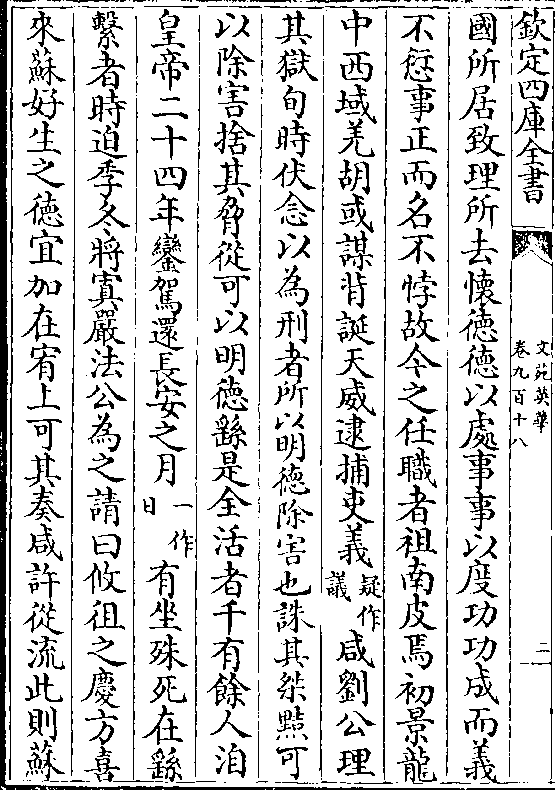 欽定四庫全書
文苑英華
卷九百十八
二
國所居致理所去懷德德以處事事以度功功成而義
不愆事正而名不悖故今之任職者祖南皮焉初景龍
中西域羌胡或謀背誕天威逮捕吏義疑作議咸劉公理
其獄旬時伏念以為刑者所以明德除害也誅其桀黠可
以除害捨其脅從可以明德繇是全活者千有餘人洎
皇帝二十四年鑾駕還長安之月一作日有坐殊死在繇
繫者時迫季冬將寘嚴法公為之請曰攸徂之慶方喜
來蘇好生之德宜加在宥上可其奏咸許從流此則蘇